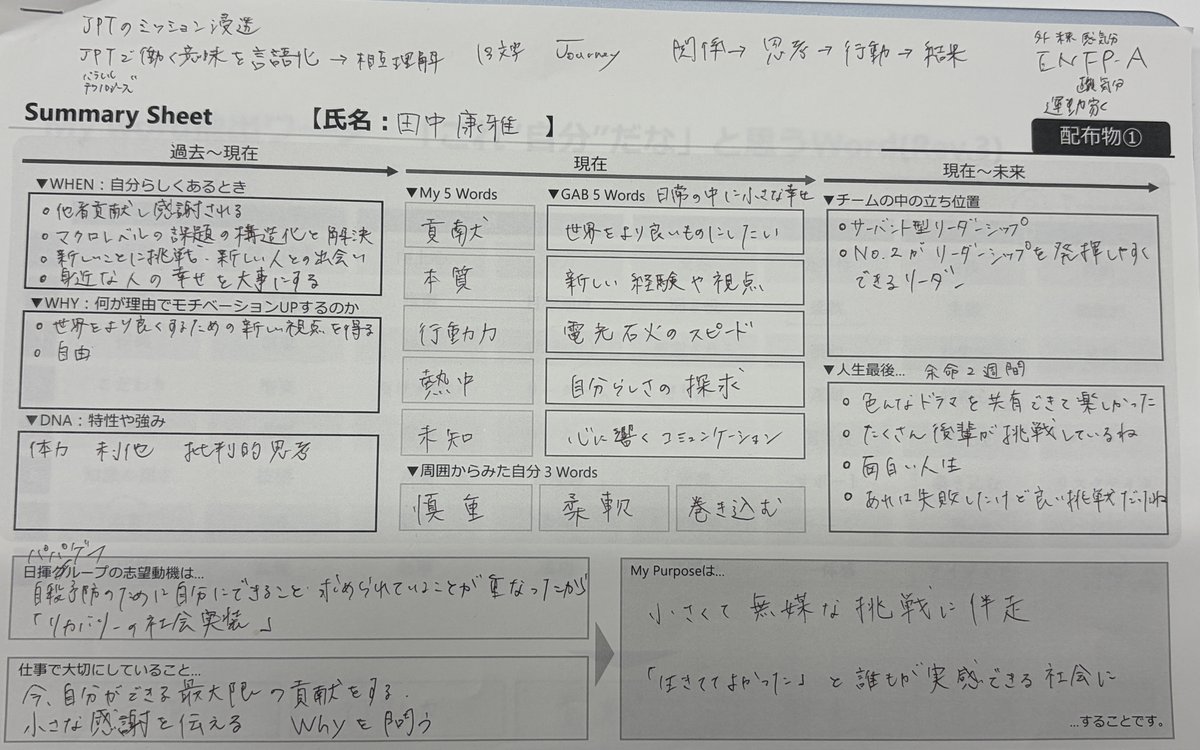 JPTのミッション浸透
JPTで働く意味を言語化→相互理解 Journey 関係→思考→行動→結果
外 気分
ENFP-A
運動家
Summary Sheet 【氏名：田中 康雅 】
配布物①
過去～現在
▼WHEN：自分らしくあるとき
○他者貢献し感謝される
○マクロレベルの課題の構造化と解決
○新しいことに挑戦・新しい人との出会い
○身近な人の幸せを大事にする
▼WHY：何が理由でモチベーションUPするのか
○世界をより良くするための新しい視点を得る
○自由
▼DNA：特性や強み
体力 利他 批判的思考
現在
▼My 5 Words
貢献
本質
行動力
熱中
未知
▼GAB 5 Words 日常の中に小さな幸せ
世界をより良いものにしたい
新しい経験や視点
電光石火のスピード
自分らしさの探求
心に響くコミュニケーション
▼周囲からみた自分3 Words
慎重
柔軟
巻き込む
現在～未来
▼チームの中の立ち位置
○サーバント型リーダーシップ
○No.2がリーダーシップを発揮しやすく
できるリーダー
▼人生最後... 余命2週間
○色んなドラマを共有できて楽しかった
○たくさん後輩が挑戦しているね
○面白い人生
○あれは失敗したけど良い挑戦だったね
日揮グループの志望動機は...
自殺予防のために自分にできること・求められていることが重なったから
「リカバリーの社会実装」
仕事で大切にしていること...
今、自分ができる最大限の貢献をする.
小さな感謝を伝える Whyを問う
My Purposeは...
小さくて無謀な挑戦に伴走
「生きててよかった」と誰もが実感できる社会に
...することです。